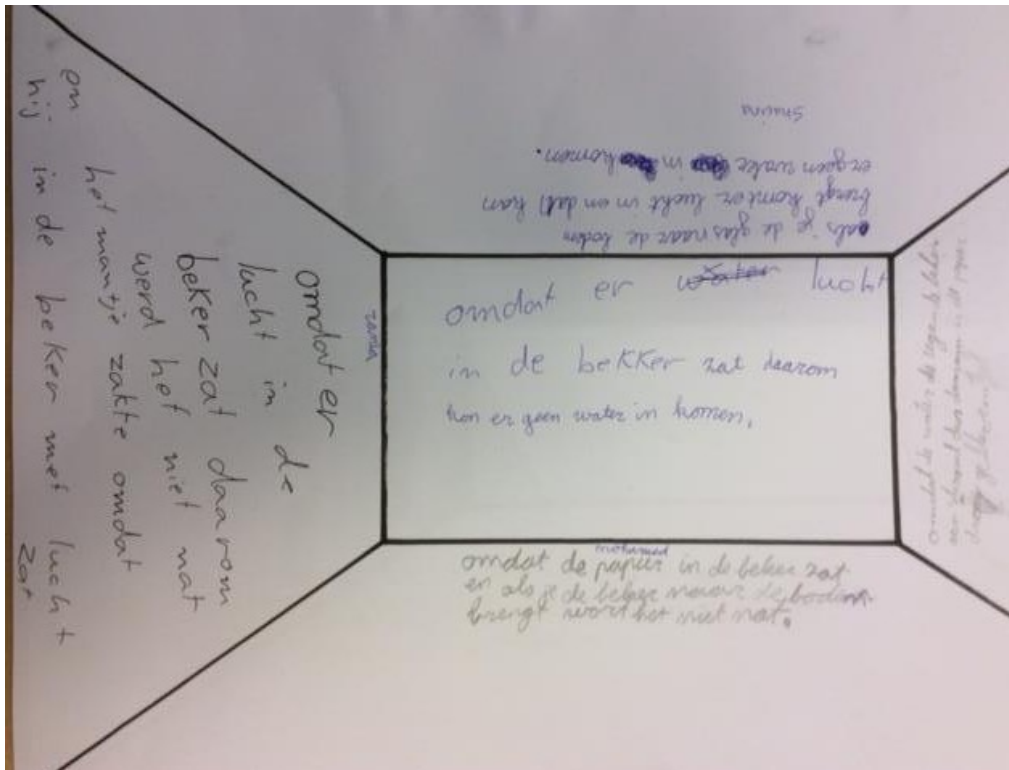 omdat er lucht
in de bekker zat daarom
kon er geen water in komen.
Zarha
omdat er
lucht in de
beker zat daarom
werd het niet nat
en het mantje zakte omdat
hij in de beker met lucht
zat
als je de glas naar de boden
brengt komt er lucht in en dat kan
er geen water in komen.
mohamed
omdat de papier in de beker zat
en als je de beker naar de bodem
brengt wort het niet nat.
omdat de water de